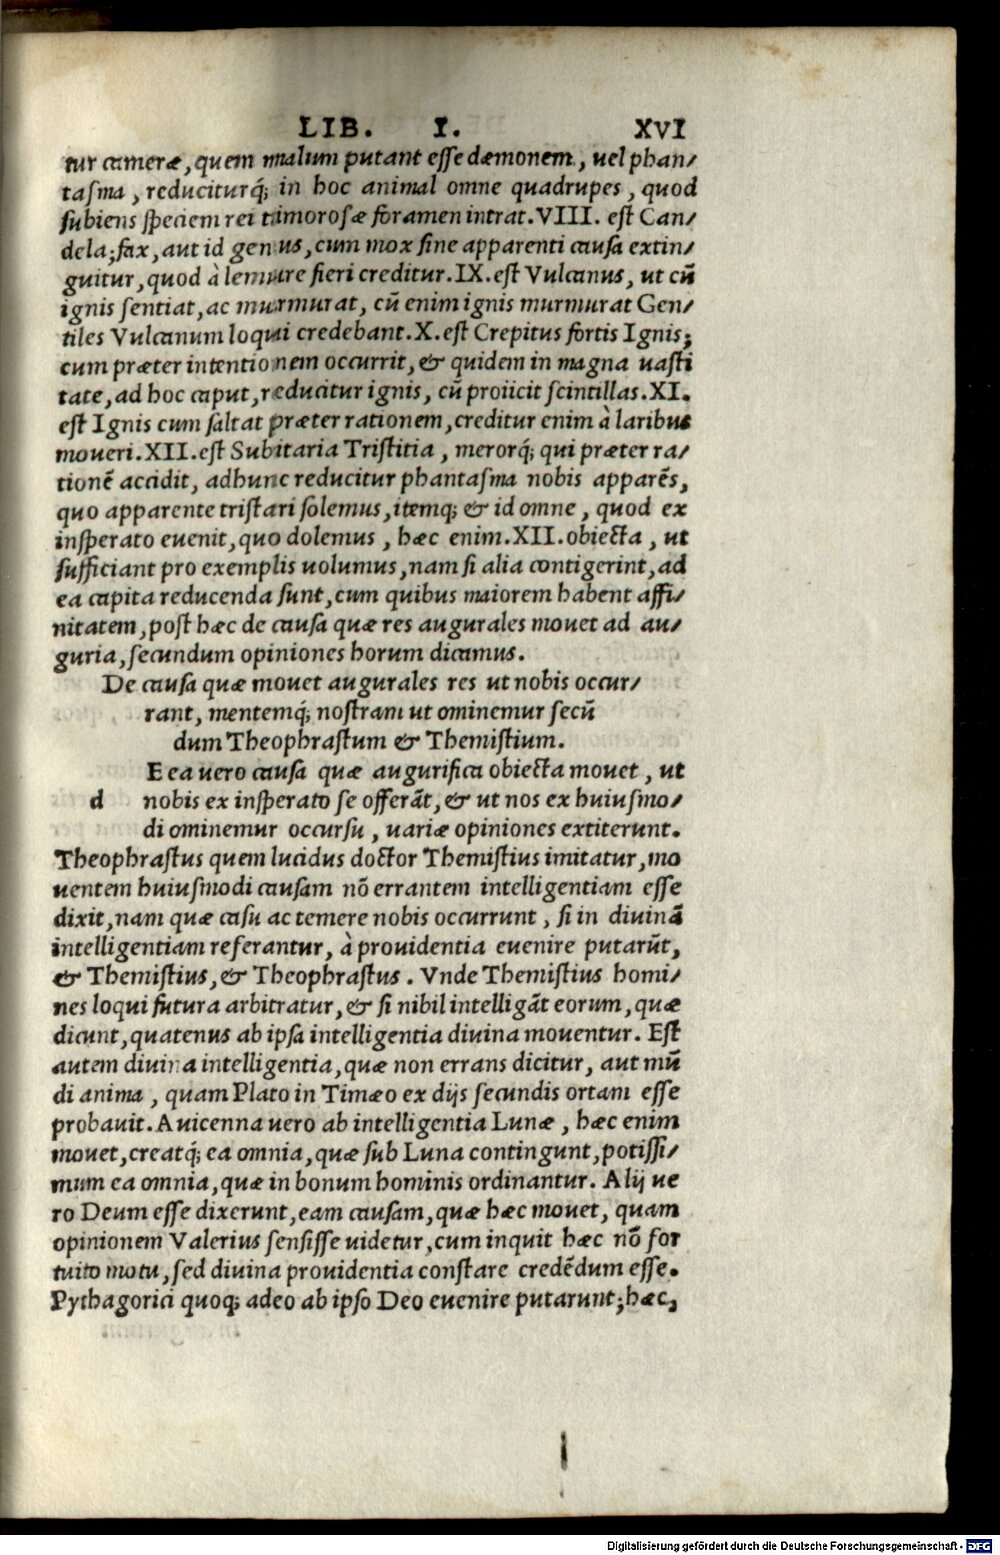 LIB. I. XVI
tur cameræ, quem malum putant esse dæmonem, uel phan/
tasma, reduciturq́; in hoc animal omne quadrupes, quod
subiens speciem rei timorosæ foramen intrat. VIII. est Can/
dela; fax, aut id genus, cum mox sine apparenti causa extin/
guitur, quod à lemure fieri creditur. IX. est Vulcanus, ut cũ
ignis sentiat, ac murmurat, cũ enim ignis murmurat Gen/
tiles Vulcanum loqui credebant. X. est Crepitus fortis Ignis;
cum præter intentionem occurrit, & quidem in magna uasti
tate, ad hoc caput, reducitur ignis, cũ proiicit scintillas. XI.
est Ignis cum saltat præter rationem, creditur enim à laribus
moueri. XII. est Subitaria Tristitia, merorq́; qui præter ra/
tionẽ accidit, adhunc reducitur phantasma nobis apparẽs,
quo apparente tristari solemus, itemq; & id omne, quod ex
insperato euenit, quo dolemus, hæc enim. XII. obiecta, ut
sufficiant pro exemplis uolumus, nam si alia contigerint, ad
ea capita reducenda sunt, cum quibus maiorem habent affi/
nitatem, post hæc de causa quæ res augurales mouet ad au/
guria, secundum opiniones horum dicamus.
De causa quæ mouet augurales res ut nobis occur/
rant, mentemq́; nostram ut ominemur secũ
dum Theophrastum & Themistium.
E ea uero causa quæ augurifica obiecta mouet, ut
d nobis ex insperato se offerãt, & ut nos ex huiusmo/
di ominemur occursu, uariæ opiniones extiterunt.
Theophrastus quem lucidus doctor Themistius imitatur, mo
uentem huiusmodi causam nõ errantem intelligentiam esse
dixit, nam quæ casu ac temere nobis occurrunt, si in diuinã
intelligentiam referantur, à prouidentia euenire putarũt,
& Themistius, & Theophrastus. Vnde Themistius homi/
nes loqui futura arbitratur, & si nihil intelligãt eorum, quæ
dicunt, quatenus ab ipsa intelligentia diuina mouentur. Est
autem diuina intelligentia, quæ non errans dicitur, aut mũ
di anima, quam Plato in Timæo ex dijs secundis ortam esse
probauit. Auicenna uero ab intelligentia Lunæ, hæc enim
mouet, creatq́; ea omnia, quæ sub Luna contingunt, potissi/
mum ea omnia, quæ in bonum hominis ordinantur. Alij ue
ro Deum esse dixerunt, eam causam, quæ hæc mouet, quam
opinionem Valerius sensisse uidetur, cum inquit hæc nõ for
tuito motu, sed diuina prouidentia constare credẽdum esse.
Pythagorici quoq; adeo ab ipso Deo euenire putarunt; hæc,
Digitalisierung gefördert durch die Deutsche Forschungsgemeinschaft - DFG